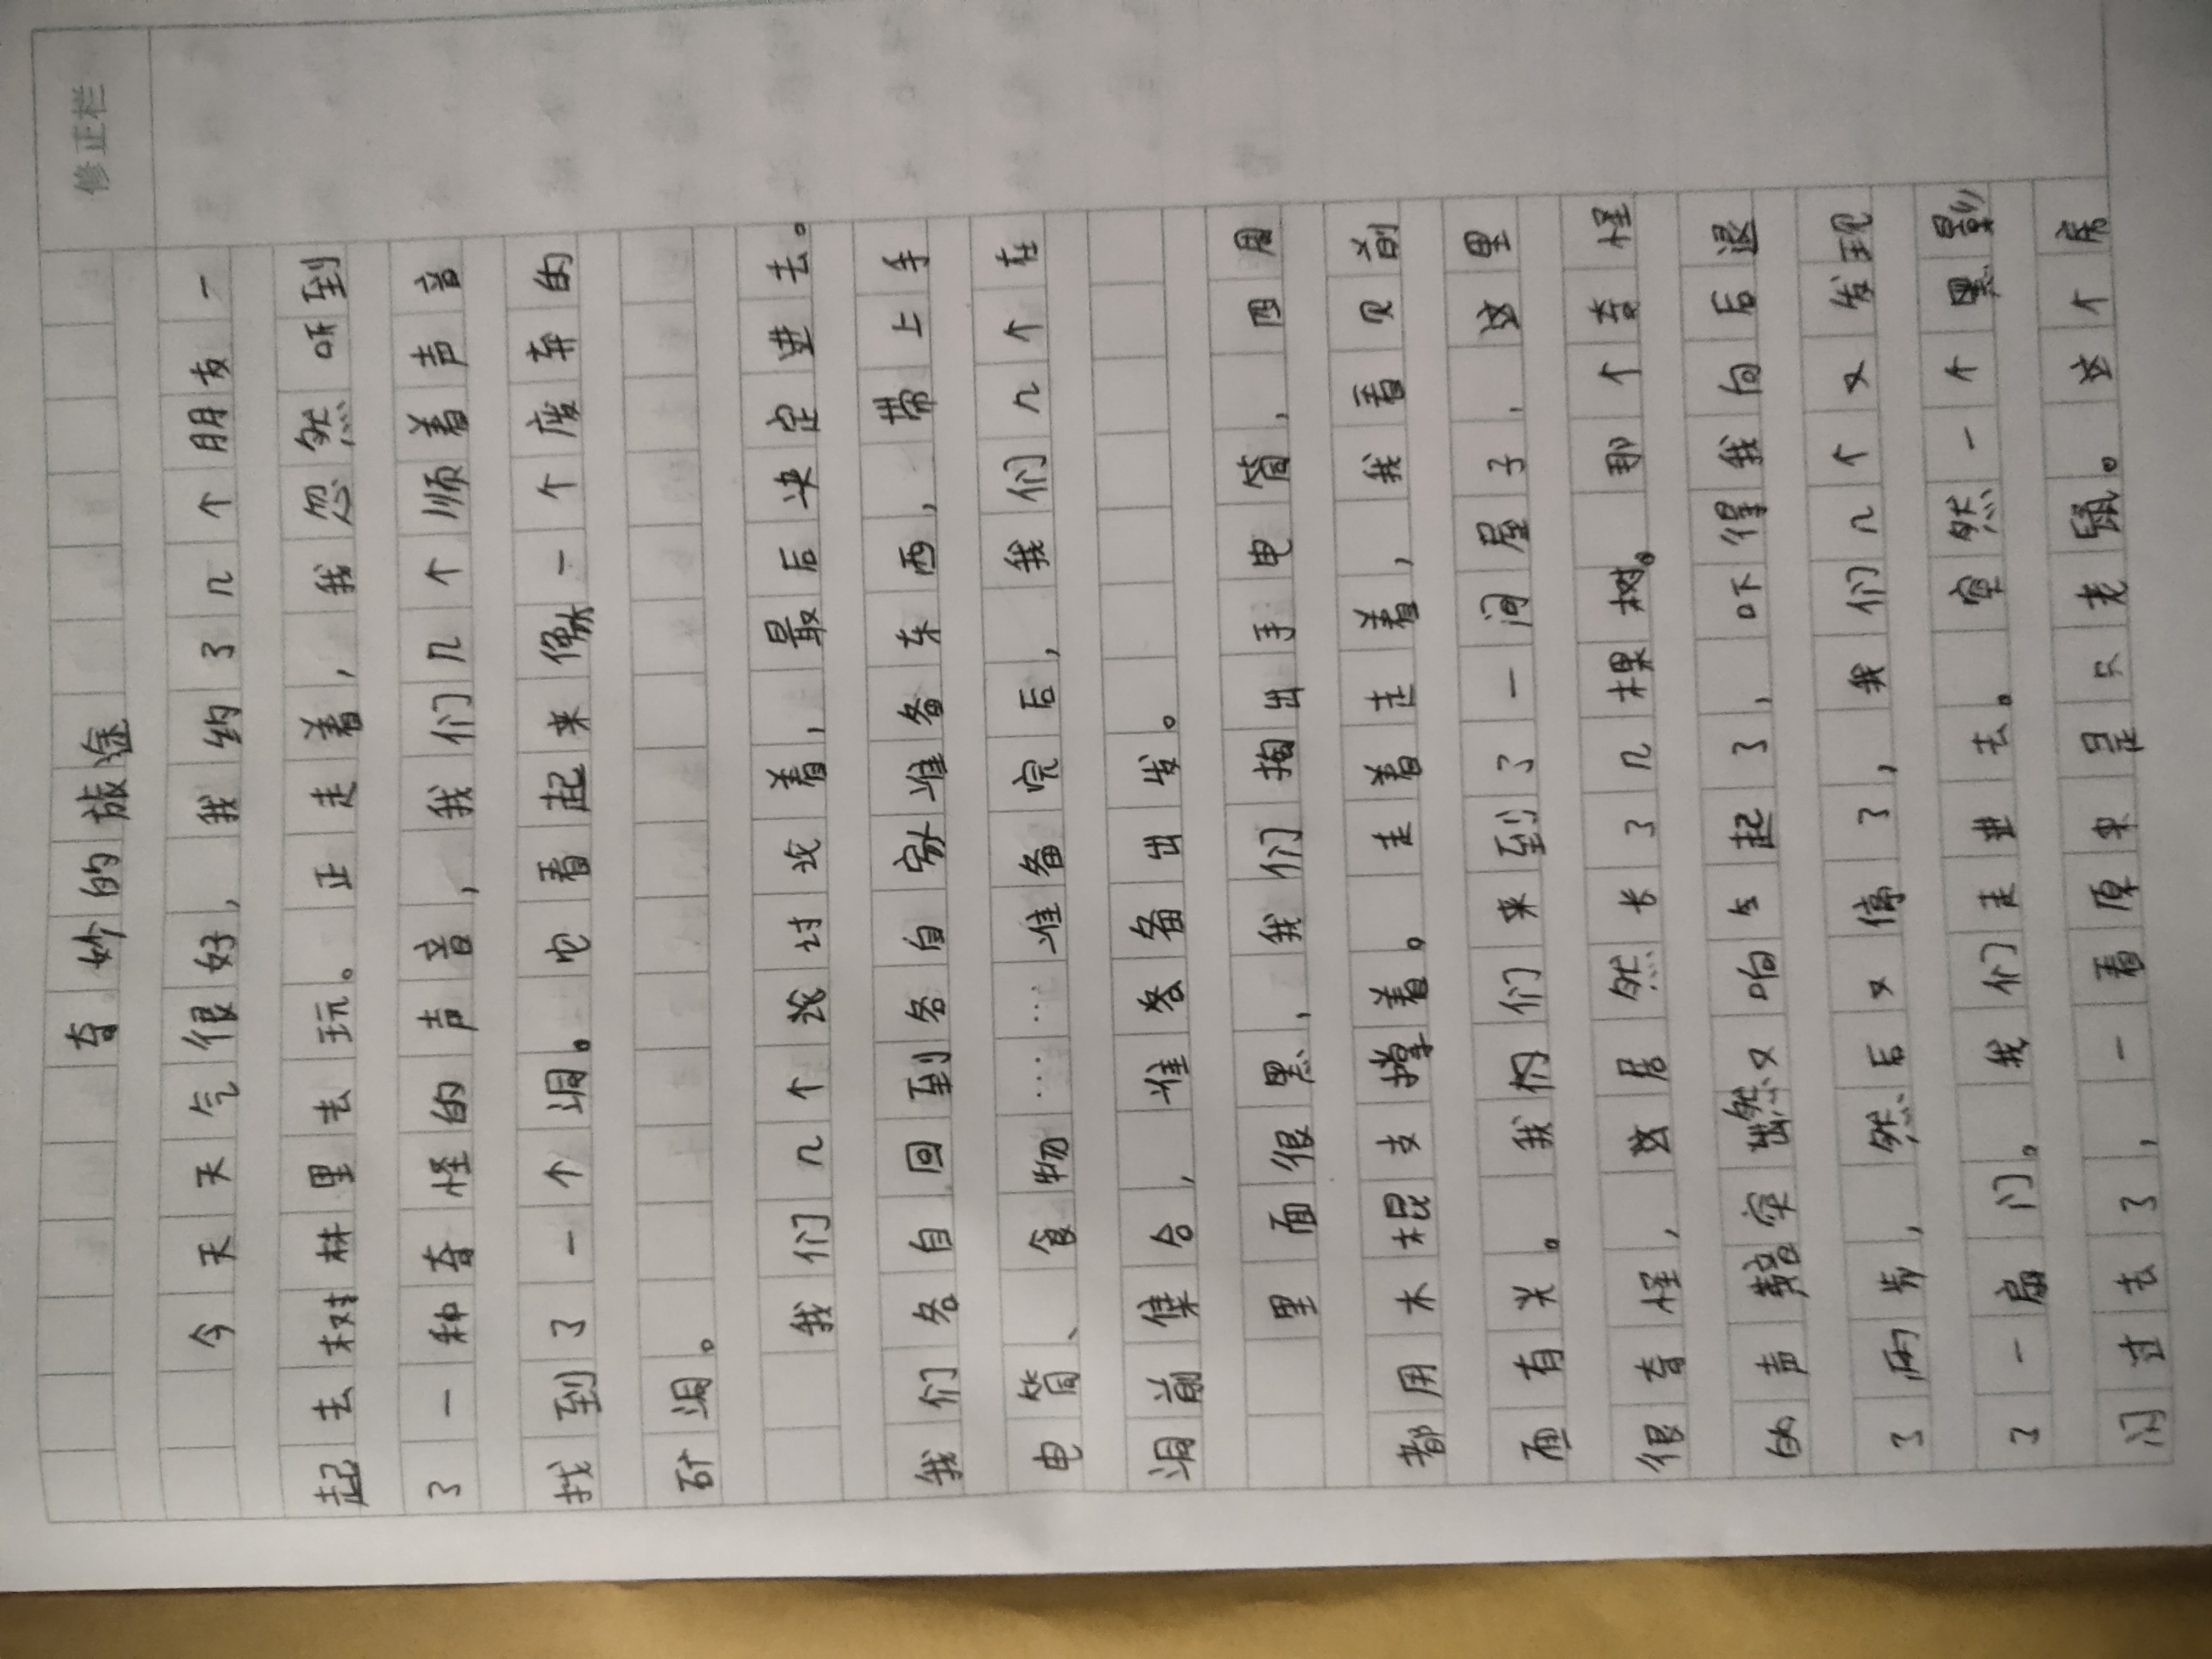 修正栏
奇妙的旅途
今天天气很好，我约了几个朋友一
起去树林里去玩。正走着，我忽然听到
了一种奇怪的声音，我们几个顺着声音
找到了一个洞。它看起来像一个废弃的
矿洞。
我们几个讨论着，最后决定进去。
我们各自回到各自家准备东西，带上手
电筒、食物……准备完后，我们几个在
洞前集合，准备出发。
里面很黑，我们掏出手电筒，四周
都用木棍支撑着。走着走着，我看见前
面有光。我们来到了一间屋子，这里
很奇怪，这居然长了几棵树。那个奇怪
的声音突然又响起了，吓得我向后退
了两步，然后又停了，我们几个又发现
了一扇门。我们走进去。突然一个黑影
闪过去了，一看原来是只老鼠。这个房